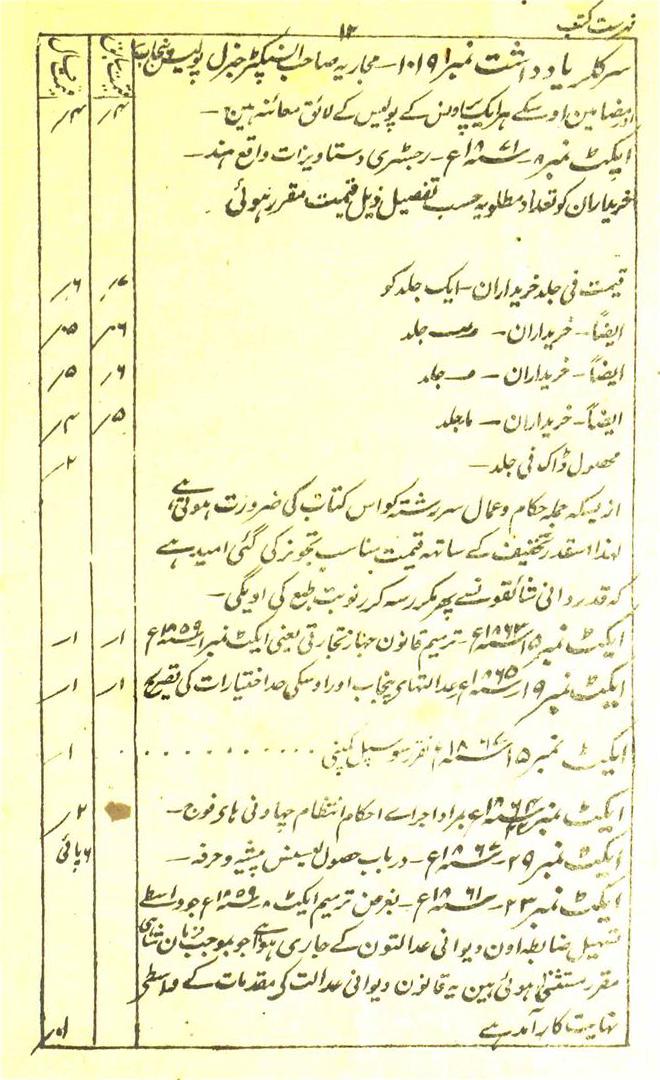 فہرست کتب
۱۳
قیمت سابق
قیمت حال
سرکلر یادداشت نمبر ۱۰۱۹۱ - مجاریہ صاحب انسپکٹر جنرل پولیس پنجاب
اور مضامین اوسکے ہر ایک پولس کے لائق معائنہ ہین - ۴/ ۴/
ایکٹ نمبر ۸ - ۱۸۷۱ء - رجسٹری دستاویزات واقع ہند -
خریداران کو تعداد مطلوبہ حسب تفصیل ذیل قیمت مقرر ہوئی
قیمت فی جلد خریداران - ایک جلد کو ۷/ ۶/
ایضاً - خریداران - جلد ۶/ ۵/
ایضاً - خریداران - جلد ۶/ ۵/
ایضاً - خریداران - جلد ۵/ ۴/
محصول ڈاک فی جلد - ۲/
از بسکہ جملہ حکام و عمال سررشتہ کو اس کتاب کی ضرورت ہوتی ہے
لہذا اسقدر تخفیف کے ساتھہ قیمت مناسب تجویز کی گئی امید ہے
کہ قدردانی شائقونسے پھر مکرر سہ کرر نوبت طبع کی اویگی -
ایکٹ نمبر ۱۵ ۱۸۶۳ء - ترمیم قانون جہاز تجارتی یعنی ایکٹ نمبر ۱ ۱۸۵۹ء ۱/ ۱/
ایکٹ نمبر ۱۹ ۱۸۶۵ء عدالتہای پنجاب اور اوسکی حد اختیارات کی تصریح ۱/ ۱/
ایکٹ نمبر ۱۵ ۱۸۶۷ء تقرر میونسپل کمیٹی . . . . . . . . . . . . ۱/
ایکٹ نمبر ۲۲ ۱۸۶۴ء بمراد اجراے احکام انتظام چہاونی ہای فوج - ۲/
ایکٹ نمبر ۲۹ - ۱۸۶۷ء - در باب حصول لیسنس پیشہ و حرفہ - ۶ پائی
ایکٹ نمبر ۲۳ - ۱۸۶۱ء - بغرض ترمیم ایکٹ ۸ - ۱۸۵۹ء جو واسطے
تسہیل ضابطہ اون دیوانی عدالتون کے جاری ہوا ہے جو بموجب فرمان شاہی
مقرر مستثنیٰ ہوئی ہین یہ قانون دیوانی عدالت کی مقدمات کے واسطی
نہایت کارآمد ہے